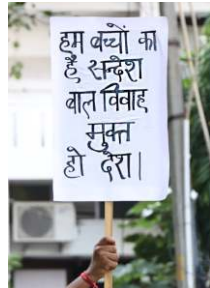 हम बच्चों का
है सन्देश
बाल विवाह
मुक्त
हो देश।